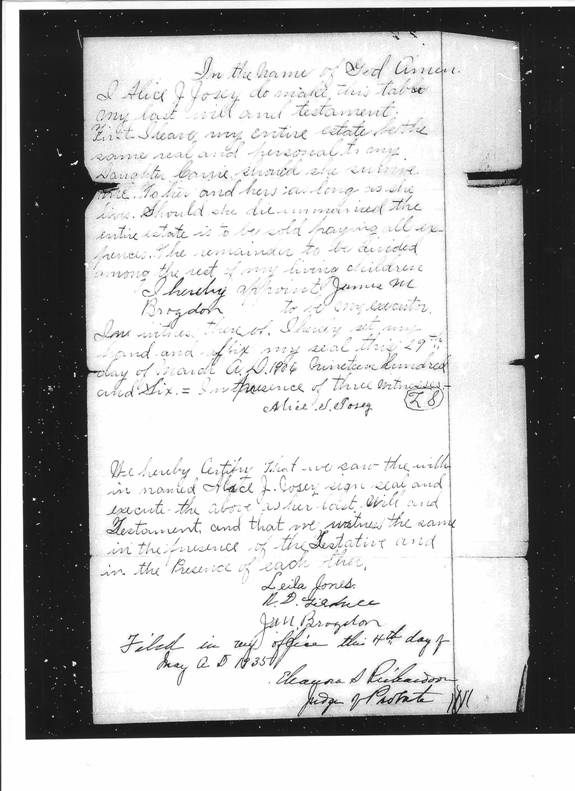 In the Name of God Amen.
I Alice J Josey do make this to be
my last will and testament.
First I leave my entire estate be the
same real and personal to my
Daughter Carrie, should she survive
me. To her and hers as long as she
lives. Should she die unmarried the
entire estate is to be sold paying all ex-
pences. The remainder to be divided
among the rest of my living children
I hereby appoint James M
Brogdon to be my executor.
In witness there of. I herey set my
hand and affix my seal this 29th
day of March A. D. 1906 Nineteen hundred
and Six. = In the presence of three witnesses-
Alice J. Josey L S
We hereby Certify that we saw the with
in named Alice J. Josey sign seal and
execute the above as her last Will and
Testament, and that we witness the same
in the presence of the Testative and
in the Presence of each other.
Leila Jones.
R. D.
J. M. Brogdon
Filed in my office this 4th day of
May A D 1935
Eleanora S Richardson
Judge of Probate